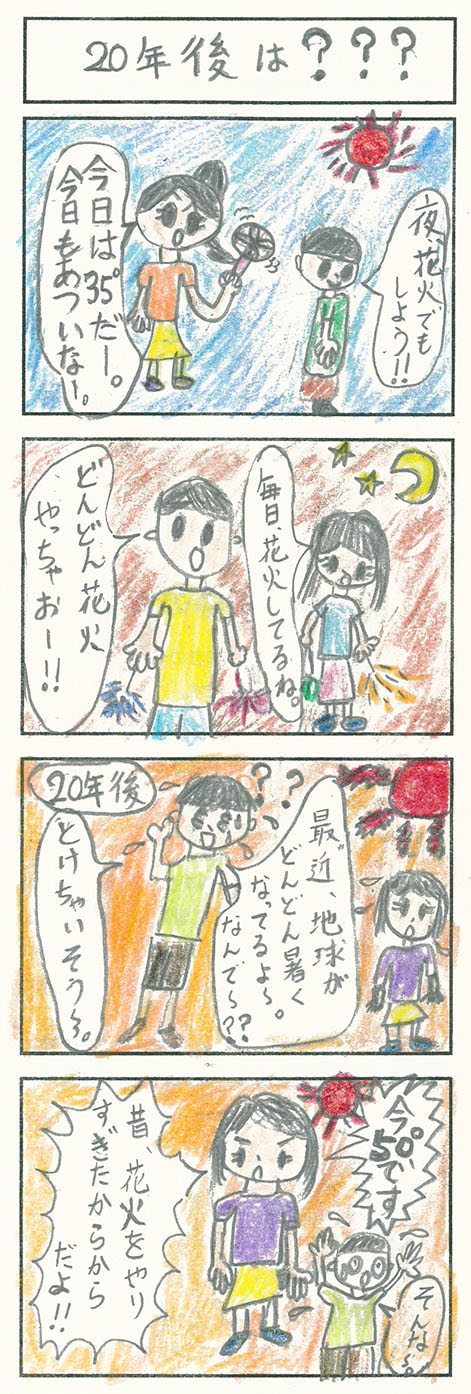 20年後は???
夜、花火でも
しよう!!
今日は35°だー。
今日もあついなー。
毎日、花火してるね。
どんどん花火
やっちゃおー!!
20年後
??
最近、地球が
どんどん暑く
なってるよ〜。
なんで〜??
とけちゃいそう〜。
今50°です
そんな〜。
昔、花火をやり
すぎたからから
だよ!!